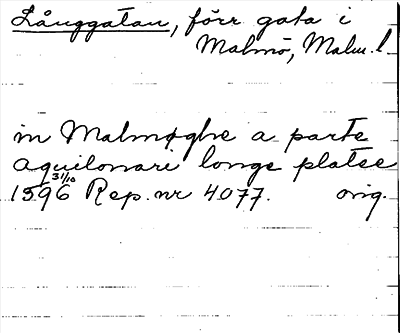 Långgatan, förr gata i
Malmö, Malm. l
in Malmøghe a parte
aquilonari longe platee
1396 31/10 Rep. nr 4077. orig.